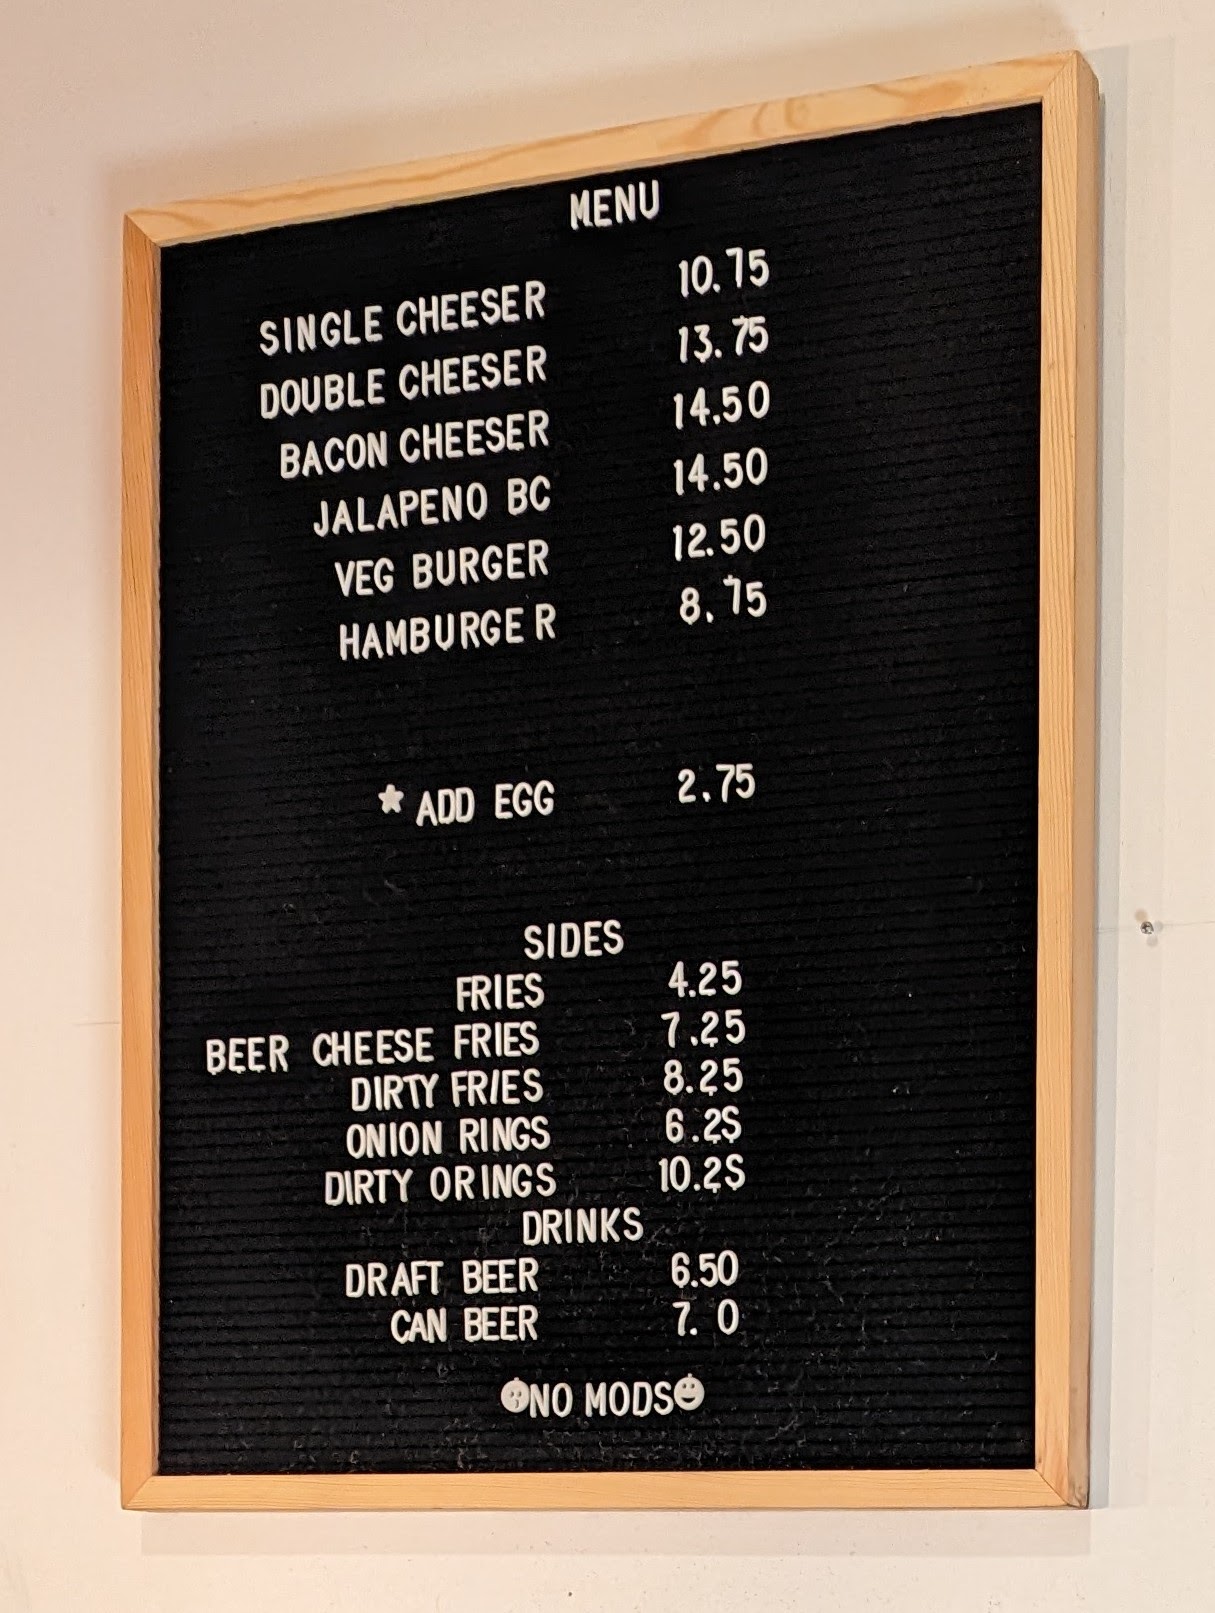 MENU
SINGLE CHEESER 10.75
DOUBLE CHEESER 13.75
BACON CHEESER 14.50
JALAPENO BC 14.50
VEG BURGER 12.50
HAMBURGER 8.75
* ADD EGG 2.75
SIDES
FRIES 4.25
BEER CHEESE FRIES 7.25
DIRTY FRIES 8.25
ONION RINGS 6.2S
DIRTY ORINGS 10.2S
DRINKS
DRAFT BEER 6.50
CAN BEER 7. 0
NO MODS